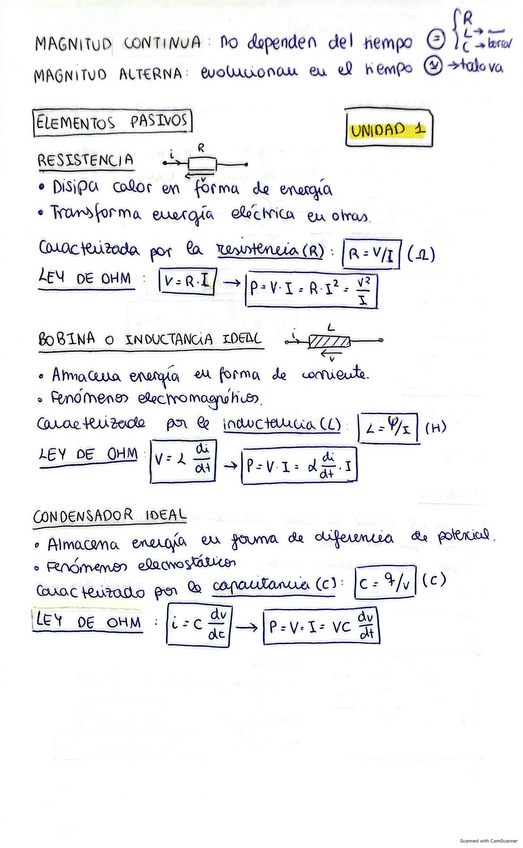 MAGNITUD CONTINUA: no dependen del tiempo (=) { R
L →
C → borrar
MAGNITUD ALTERNA: evolucionan en el tiempo (~) →
ELEMENTOS PASIVOS
UNIDAD 1
RESISTENCIA i R V
• Disipa calor en forma de energía
• Transforma energía eléctrica en otras.
Caracterizada por la resistencia (R): R = V/I (Ω)
LEY DE OHM: V = R·I → P = V·I = R·I² = V²/I
BOBINA O INDUCTANCIA IDEAL i L V
• Almacena energía en forma de corriente.
• Fenómenos electromagnéticos.
Caracterizada por la inductancia (L): L = φ/I (H)
LEY DE OHM: V = L di/dt → P = V·I = L di/dt · I
CONDENSADOR IDEAL
• Almacena energía en forma de diferencia de potencial.
• Fenómenos electrostáticos
Caracterizado por la capacitancia (C): C = q/v (C)
LEY DE OHM: i = C dv/dc → P = V·I = VC dv/dt
Scanned with CamScanner